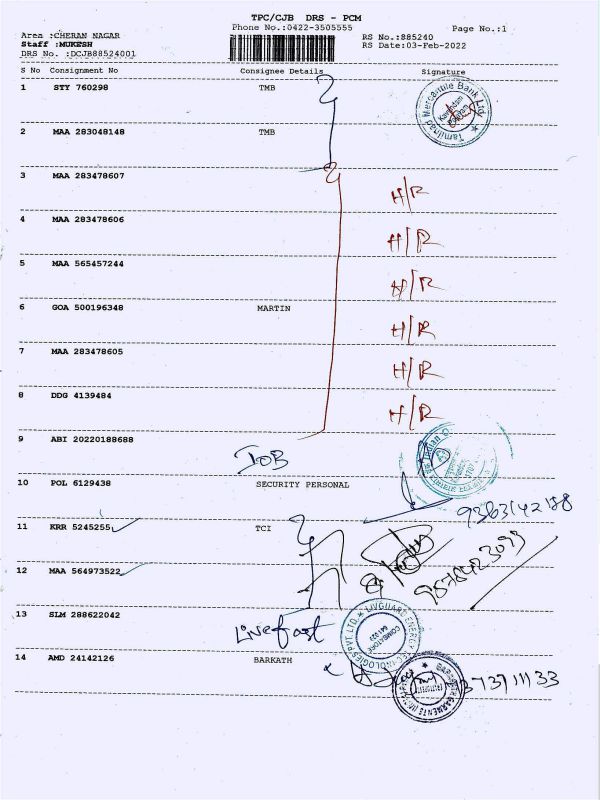 TPC/CJB DRS - PCM
Phone No.:0422-3505555
Page No.:1
Area :CHERAN NAGAR
RS No.:885240
Staff :MUKESH
RS Date:03-Feb-2022
DRS No. :DCJB88524001
S No Consignment No Consignee Details Signature
1 STY 760298 TMB
Tamilnad Mercantile Bank Ltd
2 MAA 283048148 TMB
3 MAA 283478607 H/R
4 MAA 283478606 H/R
5 MAA 565457244 H/R
6 GOA 500196348 MARTIN H/R
7 MAA 283478605 H/R
8 DDG 4139484 H/R
9 ABI 20220188688
IOB
10 POL 6129438 SECURITY PERSONAL
9363142188
11 KRR 5245255 TCI
12 MAA 564973522
9578423093
13 SLM 288622042
Livefast
LIVGUARD ENERGY TECHNOLOGIES PVT. LTD.
COIMBATORE
14 AMD 24142126 BARKATH